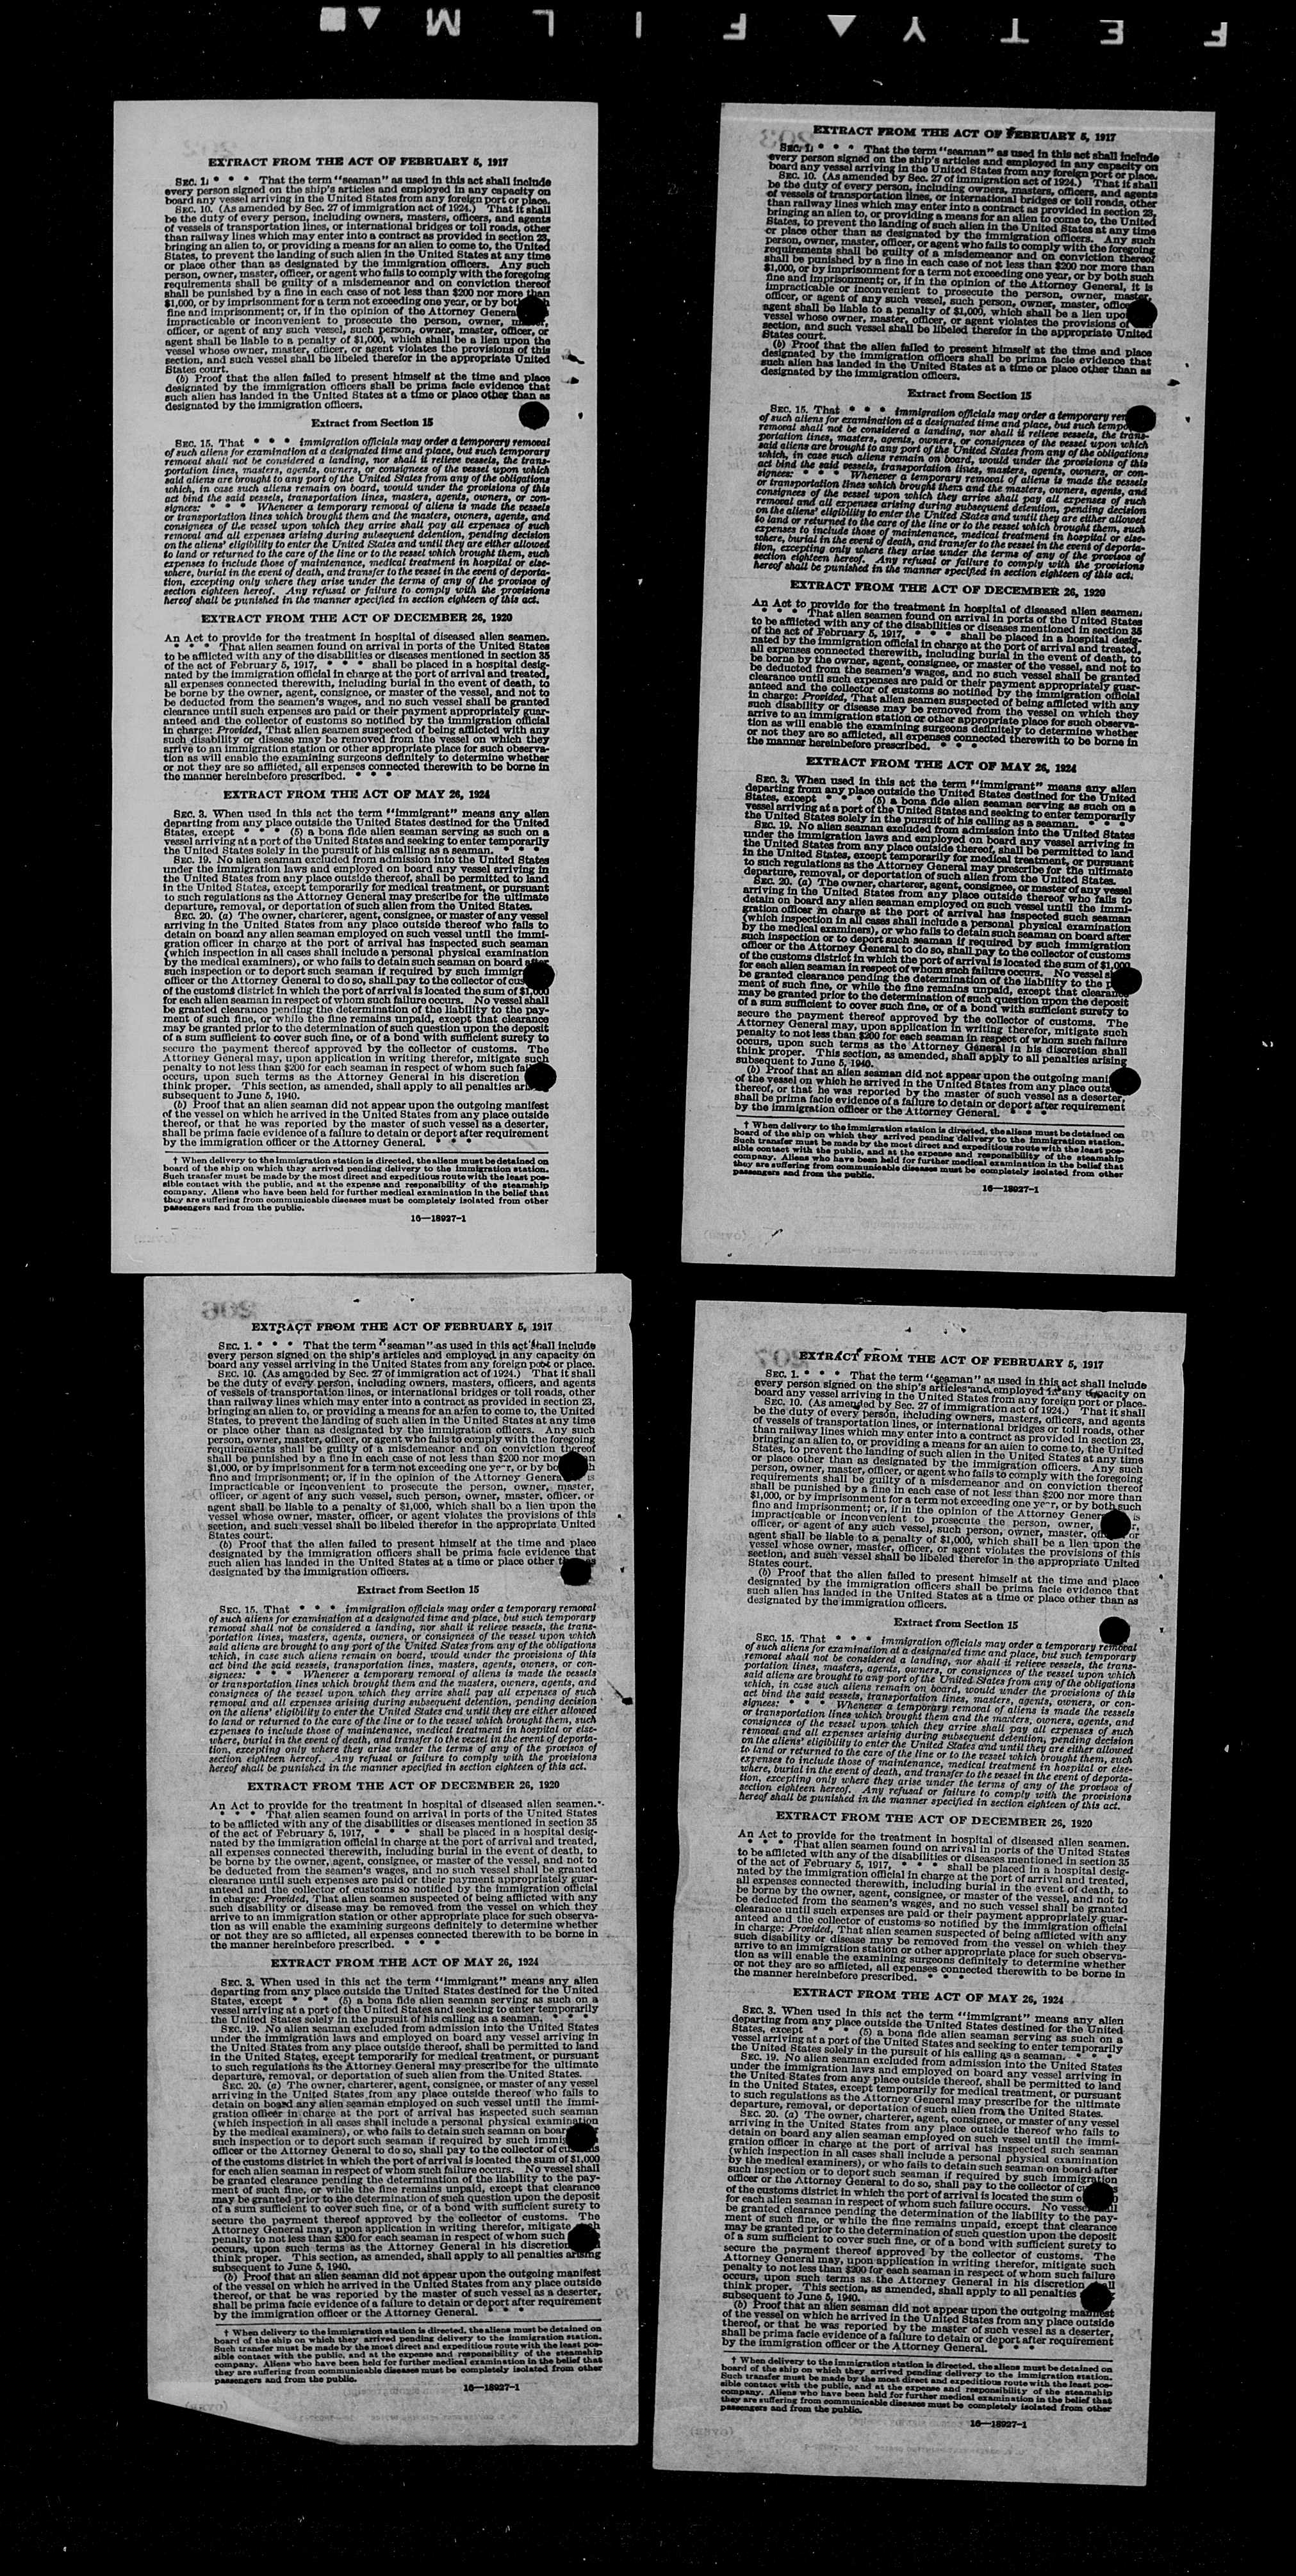 FETY FILM
EXTRACT FROM THE ACT OF FEBRUARY 5, 1917
SEC. 1. * * * That the term "seaman" as used in this act shall include
every person signed on the ship's articles and employed in any capacity on
board any vessel arriving in the United States from any foreign port or place.
SEC. 10. (As amended by Sec. 27 of immigration act of 1924.) That it shall
be the duty of every person, including owners, masters, officers, and agents
of vessels of transportation lines, or international bridges or toll roads, other
than railway lines which may enter into a contract as provided in section 23,
bringing an alien to, or providing a means for an alien to come to, the United
States, to prevent the landing of such alien in the United States at any time
or place other than as designated by the immigration officers. Any such
person, owner, master, officer, or agent who fails to comply with the foregoing
requirements shall be guilty of a misdemeanor and on conviction thereof
shall be punished by a fine in each case of not less than $200 nor more than
$1,000, or by imprisonment for a term not exceeding one year, or by both
fine and imprisonment; or, if in the opinion of the Attorney General
impracticable or inconvenient to prosecute the person, owner,
officer, or agent of any such vessel, such person, owner, master, officer, or
agent shall be liable to a penalty of $1,000, which shall be a lien upon the
vessel whose owner, master, officer, or agent violates the provisions of this
section, and such vessel shall be libeled therefor in the appropriate United
States court.
(b) Proof that the alien failed to present himself at the time and place
designated by the immigration officers shall be prima facie evidence that
such alien has landed in the United States at a time or place other than as
designated by the immigration officers.
Extract from Section 15
SEC. 15. That * * * immigration officials may order a temporary removal
of such aliens for examination at a designated time and place, but such temporary
removal shall not be considered a landing, nor shall it relieve vessels, the trans-
portation lines, masters, agents, owners, or consignees of the vessel upon which
said aliens are brought to any port of the United States from any of the obligations
which, in case such aliens remain on board, would under the provisions of this
act bind the said vessels, transportation lines, masters, agents, owners, or con-
signees: * * * Whenever a temporary removal of aliens is made the vessels
or transportation lines which brought them and the masters, owners, agents, and
consignees of the vessel upon which they arrive shall pay all expenses of such
removal and all expenses arising during subsequent detention, pending decision
on the aliens' eligibility to enter the United States and until they are either allowed
to land or returned to the care of the line or to the vessel which brought them, such
expenses to include those of maintenance, medical treatment in hospital or else-
where, burial in the event of death, and transfer to the vessel in the event of deporta-
tion, excepting only where they arise under the terms of any of the provisos of
section eighteen hereof. Any refusal or failure to comply with the provisions
hereof shall be punished in the manner specified in section eighteen of this act.
EXTRACT FROM THE ACT OF DECEMBER 26, 1920
An Act to provide for the treatment in hospital of diseased alien seamen.
* * * That alien seamen found on arrival in ports of the United States
to be afflicted with any of the disabilities or diseases mentioned in section 35
of the act of February 5, 1917, * * * shall be placed in a hospital desig-
nated by the immigration official in charge at the port of arrival and treated,
all expenses connected therewith, including burial in the event of death, to
be borne by the owner, agent, consignee, or master of the vessel, and not to
be deducted from the seamen's wages, and no such vessel shall be granted
clearance until such expenses are paid or their payment appropriately guar-
anteed and the collector of customs so notified by the immigration official
in charge: Provided, That alien seamen suspected of being afflicted with any
such disability or disease may be removed from the vessel on which they
arrive to an immigration station or other appropriate place for such observa-
tion as will enable the examining surgeons definitely to determine whether
or not they are so afflicted, all expenses connected therewith to be borne in
the manner hereinbefore prescribed. * * *
EXTRACT FROM THE ACT OF MAY 26, 1924
SEC. 3. When used in this act the term "immigrant" means any alien
departing from any place outside the United States destined for the United
States, except * * * (5) a bona fide alien seaman serving as such on a
vessel arriving at a port of the United States and seeking to enter temporarily
the United States solely in the pursuit of his calling as a seaman. * * *
SEC. 19. No alien seaman excluded from admission into the United States
under the immigration laws and employed on board any vessel arriving in
the United States from any place outside thereof, shall be permitted to land
in the United States, except temporarily for medical treatment, or pursuant
to such regulations as the Attorney General may prescribe for the ultimate
departure, removal, or deportation of such alien from the United States.
SEC. 20. (a) The owner, charterer, agent, consignee, or master of any vessel
arriving in the United States from any place outside thereof who fails to
detain on board any alien seaman employed on such vessel until the immi-
gration officer in charge at the port of arrival has inspected such seaman
(which inspection in all cases shall include a personal physical examination
by the medical examiners), or who fails to detain such seaman on board after
such inspection or to deport such seaman if required by such
officer or the Attorney General to do so, shall pay to the collector of
of the customs district in which the port of arrival is located the sum of $1,000
for each alien seaman in respect of whom such failure occurs. No vessel shall
be granted clearance pending the determination of the liability to the pay-
ment of such fine, or while the fine remains unpaid, except that clearance
may be granted prior to the determination of such question upon the deposit
of a sum sufficient to cover such fine, or of a bond with sufficient surety to
secure the payment thereof approved by the collector of customs. The
Attorney General may, upon application in writing therefor, mitigate such
penalty to not less than $200 for each seaman in respect of whom such
occurs, upon such terms as the Attorney General in his discretion
think proper. This section, as amended, shall apply to all penalties
subsequent to June 5, 1940.
(b) Proof that an alien seaman did not appear upon the outgoing manifest
of the vessel on which he arrived in the United States from any place outside
thereof, or that he was reported by the master of such vessel as a deserter,
shall be prima facie evidence of a failure to detain or deport after requirement
by the immigration officer or the Attorney General. * * *
† When delivery to the immigration station is directed, the aliens must be detained on
board of the ship on which they arrived pending delivery to the immigration station.
Such transfer must be made by the most direct and expeditious route with the least pos-
sible contact with the public, and at the expense and responsibility of the steamship
company. Aliens who have been held for further medical examination in the belief that
they are suffering from communicable diseases must be completely isolated from other
passengers and from the public.
16—18927-1
EXTRACT FROM THE ACT OF FEBRUARY 5, 1917
SEC. 1. * * * That the term "seaman" as used in this act shall include
every person signed on the ship's articles and employed in any capacity on
board any vessel arriving in the United States from any foreign port or place.
SEC. 10. (As amended by Sec. 27 of immigration act of 1924.) That it shall
be the duty of every person, including owners, masters, officers, and agents
of vessels of transportation lines, or international bridges or toll roads, other
than railway lines which may enter into a contract as provided in section 23,
bringing an alien to, or providing a means for an alien to come to, the United
States, to prevent the landing of such alien in the United States at any time
or place other than as designated by the immigration officers. Any such
person, owner, master, officer, or agent who fails to comply with the foregoing
requirements shall be guilty of a misdemeanor and on conviction thereof
shall be punished by a fine in each case of not less than $200 nor more than
$1,000, or by imprisonment for a term not exceeding one year, or by both such
fine and imprisonment; or, if in the opinion of the Attorney General, it is
impracticable or inconvenient to prosecute the person, owner, master,
officer, or agent of any such vessel, such person, owner, master,
agent shall be liable to a penalty of $1,000, which shall be a lien upon
vessel whose owner, master, officer, or agent violates the provisions of
section, and such vessel shall be libeled therefor in the appropriate United
States court.
(b) Proof that the alien failed to present himself at the time and place
designated by the immigration officers shall be prima facie evidence that
such alien has landed in the United States at a time or place other than as
designated by the immigration officers.
Extract from Section 15
SEC. 15. That * * * immigration officials may order a temporary
of such aliens for examination at a designated time and place, but such
removal shall not be considered a landing, nor shall it relieve vessels, the trans-
portation lines, masters, agents, owners, or consignees of the vessel upon which
said aliens are brought to any port of the United States from any of the obligations
which, in case such aliens remain on board, would under the provisions of this
act bind the said vessels, transportation lines, masters, agents, owners, or con-
signees: * * * Whenever a temporary removal of aliens is made the vessels
or transportation lines which brought them and the masters, owners, agents, and
consignees of the vessel upon which they arrive shall pay all expenses of such
removal and all expenses arising during subsequent detention, pending decision
on the aliens' eligibility to enter the United States and until they are either allowed
to land or returned to the care of the line or to the vessel which brought them, such
expenses to include those of maintenance, medical treatment in hospital or else-
where, burial in the event of death, and transfer to the vessel in the event of deporta-
tion, excepting only where they arise under the terms of any of the provisos of
section eighteen hereof. Any refusal or failure to comply with the provisions
hereof shall be punished in the manner specified in section eighteen of this act.
EXTRACT FROM THE ACT OF DECEMBER 26, 1920
An Act to provide for the treatment in hospital of diseased alien seamen.
* * * That alien seamen found on arrival in ports of the United States
to be afflicted with any of the disabilities or diseases mentioned in section 35
of the act of February 5, 1917, * * * shall be placed in a hospital desig-
nated by the immigration official in charge at the port of arrival and treated,
all expenses connected therewith, including burial in the event of death, to
be borne by the owner, agent, consignee, or master of the vessel, and not to
be deducted from the seamen's wages, and no such vessel shall be granted
clearance until such expenses are paid or their payment appropriately guar-
anteed and the collector of customs so notified by the immigration official
in charge: Provided, That alien seamen suspected of being afflicted with any
such disability or disease may be removed from the vessel on which they
arrive to an immigration station or other appropriate place for such observa-
tion as will enable the examining surgeons definitely to determine whether
or not they are so afflicted, all expenses connected therewith to be borne in
the manner hereinbefore prescribed. * * *
EXTRACT FROM THE ACT OF MAY 26, 1924
SEC. 3. When used in this act the term "immigrant" means any alien
departing from any place outside the United States destined for the United
States, except * * * (5) a bona fide alien seaman serving as such on a
vessel arriving at a port of the United States and seeking to enter temporarily
the United States solely in the pursuit of his calling as a seaman. * * *
SEC. 19. No alien seaman excluded from admission into the United States
under the immigration laws and employed on board any vessel arriving in
the United States from any place outside thereof, shall be permitted to land
in the United States, except temporarily for medical treatment, or pursuant
to such regulations as the Attorney General may prescribe for the ultimate
departure, removal, or deportation of such alien from the United States.
SEC. 20. (a) The owner, charterer, agent, consignee, or master of any vessel
arriving in the United States from any place outside thereof who fails to
detain on board any alien seaman employed on such vessel until the immi-
gration officer in charge at the port of arrival has inspected such seaman
(which inspection in all cases shall include a personal physical examination
by the medical examiners), or who fails to detain such seaman on board after
such inspection or to deport such seaman if required by such immigration
officer or the Attorney General to do so, shall pay to the collector of customs
of the customs district in which the port of arrival is located the sum of $1,000
for each alien seaman in respect of whom such failure occurs. No vessel
be granted clearance pending the determination of the liability to the
ment of such fine, or while the fine remains unpaid, except that clearance
may be granted prior to the determination of such question upon the deposit
of a sum sufficient to cover such fine, or of a bond with sufficient surety to
secure the payment thereof approved by the collector of customs. The
Attorney General may, upon application in writing therefor, mitigate such
penalty to not less than $200 for each seaman in respect of whom such failure
occurs, upon such terms as the Attorney General in his discretion shall
think proper. This section, as amended, shall apply to all penalties arising
subsequent to June 5, 1940.
(b) Proof that an alien seaman did not appear upon the outgoing
of the vessel on which he arrived in the United States from any place
thereof, or that he was reported by the master of such vessel as a deserter,
shall be prima facie evidence of a failure to detain or deport after requirement
by the immigration officer or the Attorney General. * * *
† When delivery to the immigration station is directed, the aliens must be detained on
board of the ship on which they arrived pending delivery to the immigration station.
Such transfer must be made by the most direct and expeditious route with the least pos-
sible contact with the public, and at the expense and responsibility of the steamship
company. Aliens who have been held for further medical examination in the belief that
they are suffering from communicable diseases must be completely isolated from other
passengers and from the public.
16—18927-1
206
EXTRACT FROM THE ACT OF FEBRUARY 5, 1917
SEC. 1. * * * That the term "seaman" as used in this act shall include
every person signed on the ship's articles and employed in any capacity on
board any vessel arriving in the United States from any foreign port or place.
SEC. 10. (As amended by Sec. 27 of immigration act of 1924.) That it shall
be the duty of every person, including owners, masters, officers, and agents
of vessels of transportation lines, or international bridges or toll roads, other
than railway lines which may enter into a contract as provided in section 23,
bringing an alien to, or providing a means for an alien to come to, the United
States, to prevent the landing of such alien in the United States at any time
or place other than as designated by the immigration officers. Any such
person, owner, master, officer, or agent who fails to comply with the foregoing
requirements shall be guilty of a misdemeanor and on conviction thereof
shall be punished by a fine in each case of not less than $200 nor
$1,000, or by imprisonment for a term not exceeding one year, or by
fine and imprisonment; or, if in the opinion of the Attorney General is
impracticable or inconvenient to prosecute the person, owner, master,
officer, or agent of any such vessel, such person, owner, master, officer, or
agent shall be liable to a penalty of $1,000, which shall be a lien upon the
vessel whose owner, master, officer, or agent violates the provisions of this
section, and such vessel shall be libeled therefor in the appropriate United
States court.
(b) Proof that the alien failed to present himself at the time and place
designated by the immigration officers shall be prima facie evidence that
such alien has landed in the United States at a time or place other
designated by the immigration officers.
Extract from Section 15
SEC. 15. That * * * immigration officials may order a temporary removal
of such aliens for examination at a designated time and place, but such temporary
removal shall not be considered a landing, nor shall it relieve vessels, the trans-
portation lines, masters, agents, owners, or consignees of the vessel upon which
said aliens are brought to any port of the United States from any of the obligations
which, in case such aliens remain on board, would under the provisions of this
act bind the said vessels, transportation lines, masters, agents, owners, or con-
signees: * * * Whenever a temporary removal of aliens is made the vessels
or transportation lines which brought them and the masters, owners, agents, and
consignees of the vessel upon which they arrive shall pay all expenses of such
removal and all expenses arising during subsequent detention, pending decision
on the aliens' eligibility to enter the United States and until they are either allowed
to land or returned to the care of the line or to the vessel which brought them, such
expenses to include those of maintenance, medical treatment in hospital or else-
where, burial in the event of death, and transfer to the vessel in the event of deporta-
tion, excepting only where they arise under the terms of any of the provisos of
section eighteen hereof. Any refusal or failure to comply with the provisions
hereof shall be punished in the manner specified in section eighteen of this act.
EXTRACT FROM THE ACT OF DECEMBER 26, 1920
An Act to provide for the treatment in hospital of diseased alien seamen.
* * * That alien seamen found on arrival in ports of the United States
to be afflicted with any of the disabilities or diseases mentioned in section 35
of the act of February 5, 1917, * * * shall be placed in a hospital desig-
nated by the immigration official in charge at the port of arrival and treated,
all expenses connected therewith, including burial in the event of death, to
be borne by the owner, agent, consignee, or master of the vessel, and not to
be deducted from the seamen's wages, and no such vessel shall be granted
clearance until such expenses are paid or their payment appropriately guar-
anteed and the collector of customs so notified by the immigration official
in charge: Provided, That alien seamen suspected of being afflicted with any
such disability or disease may be removed from the vessel on which they
arrive to an immigration station or other appropriate place for such observa-
tion as will enable the examining surgeons definitely to determine whether
or not they are so afflicted, all expenses connected therewith to be borne in
the manner hereinbefore prescribed. * * *
EXTRACT FROM THE ACT OF MAY 26, 1924
SEC. 3. When used in this act the term "immigrant" means any alien
departing from any place outside the United States destined for the United
States, except * * * (5) a bona fide alien seaman serving as such on a
vessel arriving at a port of the United States and seeking to enter temporarily
the United States solely in the pursuit of his calling as a seaman. * * *
SEC. 19. No alien seaman excluded from admission into the United States
under the immigration laws and employed on board any vessel arriving in
the United States from any place outside thereof, shall be permitted to land
in the United States, except temporarily for medical treatment, or pursuant
to such regulations as the Attorney General may prescribe for the ultimate
departure, removal, or deportation of such alien from the United States.
SEC. 20. (a) The owner, charterer, agent, consignee, or master of any vessel
arriving in the United States from any place outside thereof who fails to
detain on board any alien seaman employed on such vessel until the immi-
gration officer in charge at the port of arrival has inspected such seaman
(which inspection in all cases shall include a personal physical examination
by the medical examiners), or who fails to detain such seaman on
such inspection or to deport such seaman if required by such
officer or the Attorney General to do so, shall pay to the collector of
of the customs district in which the port of arrival is located the sum of $1,000
for each alien seaman in respect of whom such failure occurs. No vessel shall
be granted clearance pending the determination of the liability to the pay-
ment of such fine, or while the fine remains unpaid, except that clearance
may be granted prior to the determination of such question upon the deposit
of a sum sufficient to cover such fine, or of a bond with sufficient surety to
secure the payment thereof approved by the collector of customs. The
Attorney General may, upon application in writing therefor, mitigate
penalty to not less than $200 for each seaman in respect of whom such
occurs, upon such terms as the Attorney General in his discretion
think proper. This section, as amended, shall apply to all penalties arising
subsequent to June 5, 1940.
(b) Proof that an alien seaman did not appear upon the outgoing manifest
of the vessel on which he arrived in the United States from any place outside
thereof, or that he was reported by the master of such vessel as a deserter,
shall be prima facie evidence of a failure to detain or deport after requirement
by the immigration officer or the Attorney General. * * *
† When delivery to the immigration station is directed, the aliens must be detained on
board of the ship on which they arrived pending delivery to the immigration station.
Such transfer must be made by the most direct and expeditious route with the least pos-
sible contact with the public, and at the expense and responsibility of the steamship
company. Aliens who have been held for further medical examination in the belief that
they are suffering from communicable diseases must be completely isolated from other
passengers and from the public.
16—18927-1
207
EXTRACT FROM THE ACT OF FEBRUARY 5, 1917
SEC. 1. * * * That the term "seaman" as used in this act shall include
every person signed on the ship's articles and employed in any capacity on
board any vessel arriving in the United States from any foreign port or place.
SEC. 10. (As amended by Sec. 27 of immigration act of 1924.) That it shall
be the duty of every person, including owners, masters, officers, and agents
of vessels of transportation lines, or international bridges or toll roads, other
than railway lines which may enter into a contract as provided in section 23,
bringing an alien to, or providing a means for an alien to come to, the United
States, to prevent the landing of such alien in the United States at any time
or place other than as designated by the immigration officers. Any such
person, owner, master, officer, or agent who fails to comply with the foregoing
requirements shall be guilty of a misdemeanor and on conviction thereof
shall be punished by a fine in each case of not less than $200 nor more than
$1,000, or by imprisonment for a term not exceeding one year, or by both such
fine and imprisonment; or, if in the opinion of the Attorney General is
impracticable or inconvenient to prosecute the person, owner,
officer, or agent of any such vessel, such person, owner, master, or
agent shall be liable to a penalty of $1,000, which shall be a lien upon the
vessel whose owner, master, officer, or agent violates the provisions of this
section, and such vessel shall be libeled therefor in the appropriate United
States court.
(b) Proof that the alien failed to present himself at the time and place
designated by the immigration officers shall be prima facie evidence that
such alien has landed in the United States at a time or place other than as
designated by the immigration officers.
Extract from Section 15
SEC. 15. That * * * immigration officials may order a temporary removal
of such aliens for examination at a designated time and place, but such temporary
removal shall not be considered a landing, nor shall it relieve vessels, the trans-
portation lines, masters, agents, owners, or consignees of the vessel upon which
said aliens are brought to any port of the United States from any of the obligations
which, in case such aliens remain on board, would under the provisions of this
act bind the said vessels, transportation lines, masters, agents, owners, or con-
signees: * * * Whenever a temporary removal of aliens is made the vessels
or transportation lines which brought them and the masters, owners, agents, and
consignees of the vessel upon which they arrive shall pay all expenses of such
removal and all expenses arising during subsequent detention, pending decision
on the aliens' eligibility to enter the United States and until they are either allowed
to land or returned to the care of the line or to the vessel which brought them, such
expenses to include those of maintenance, medical treatment in hospital or else-
where, burial in the event of death, and transfer to the vessel in the event of deporta-
tion, excepting only where they arise under the terms of any of the provisos of
section eighteen hereof. Any refusal or failure to comply with the provisions
hereof shall be punished in the manner specified in section eighteen of this act.
EXTRACT FROM THE ACT OF DECEMBER 26, 1920
An Act to provide for the treatment in hospital of diseased alien seamen.
* * * That alien seamen found on arrival in ports of the United States
to be afflicted with any of the disabilities or diseases mentioned in section 35
of the act of February 5, 1917, * * * shall be placed in a hospital desig-
nated by the immigration official in charge at the port of arrival and treated,
all expenses connected therewith, including burial in the event of death, to
be borne by the owner, agent, consignee, or master of the vessel, and not to
be deducted from the seamen's wages, and no such vessel shall be granted
clearance until such expenses are paid or their payment appropriately guar-
anteed and the collector of customs so notified by the immigration official
in charge: Provided, That alien seamen suspected of being afflicted with any
such disability or disease may be removed from the vessel on which they
arrive to an immigration station or other appropriate place for such observa-
tion as will enable the examining surgeons definitely to determine whether
or not they are so afflicted, all expenses connected therewith to be borne in
the manner hereinbefore prescribed. * * *
EXTRACT FROM THE ACT OF MAY 26, 1924
SEC. 3. When used in this act the term "immigrant" means any alien
departing from any place outside the United States destined for the United
States, except * * * (5) a bona fide alien seaman serving as such on a
vessel arriving at a port of the United States and seeking to enter temporarily
the United States solely in the pursuit of his calling as a seaman. * * *
SEC. 19. No alien seaman excluded from admission into the United States
under the immigration laws and employed on board any vessel arriving in
the United States from any place outside thereof, shall be permitted to land
in the United States, except temporarily for medical treatment, or pursuant
to such regulations as the Attorney General may prescribe for the ultimate
departure, removal, or deportation of such alien from the United States.
SEC. 20. (a) The owner, charterer, agent, consignee, or master of any vessel
arriving in the United States from any place outside thereof who fails to
detain on board any alien seaman employed on such vessel until the immi-
gration officer in charge at the port of arrival has inspected such seaman
(which inspection in all cases shall include a personal physical examination
by the medical examiners), or who fails to detain such seaman on board after
such inspection or to deport such seaman if required by such immigration
officer or the Attorney General to do so, shall pay to the collector of
of the customs district in which the port of arrival is located the sum
for each alien seaman in respect of whom such failure occurs. No vessel
be granted clearance pending the determination of the liability to the pay-
ment of such fine, or while the fine remains unpaid, except that clearance
may be granted prior to the determination of such question upon the deposit
of a sum sufficient to cover such fine, or of a bond with sufficient surety to
secure the payment thereof approved by the collector of customs. The
Attorney General may, upon application in writing therefor, mitigate such
penalty to not less than $200 for each seaman in respect of whom such failure
occurs, upon such terms as the Attorney General in his discretion
think proper. This section, as amended, shall apply to all penalties
subsequent to June 5, 1940.
(b) Proof that an alien seaman did not appear upon the outgoing manifest
of the vessel on which he arrived in the United States from any place outside
thereof, or that he was reported by the master of such vessel as a deserter,
shall be prima facie evidence of a failure to detain or deport after requirement
by the immigration officer or the Attorney General. * * *
† When delivery to the immigration station is directed, the aliens must be detained on
board of the ship on which they arrived pending delivery to the immigration station.
Such transfer must be made by the most direct and expeditious route with the least pos-
sible contact with the public, and at the expense and responsibility of the steamship
company. Aliens who have been held for further medical examination in the belief that
they are suffering from communicable diseases must be completely isolated from other
passengers and from the public.
16—18927-1